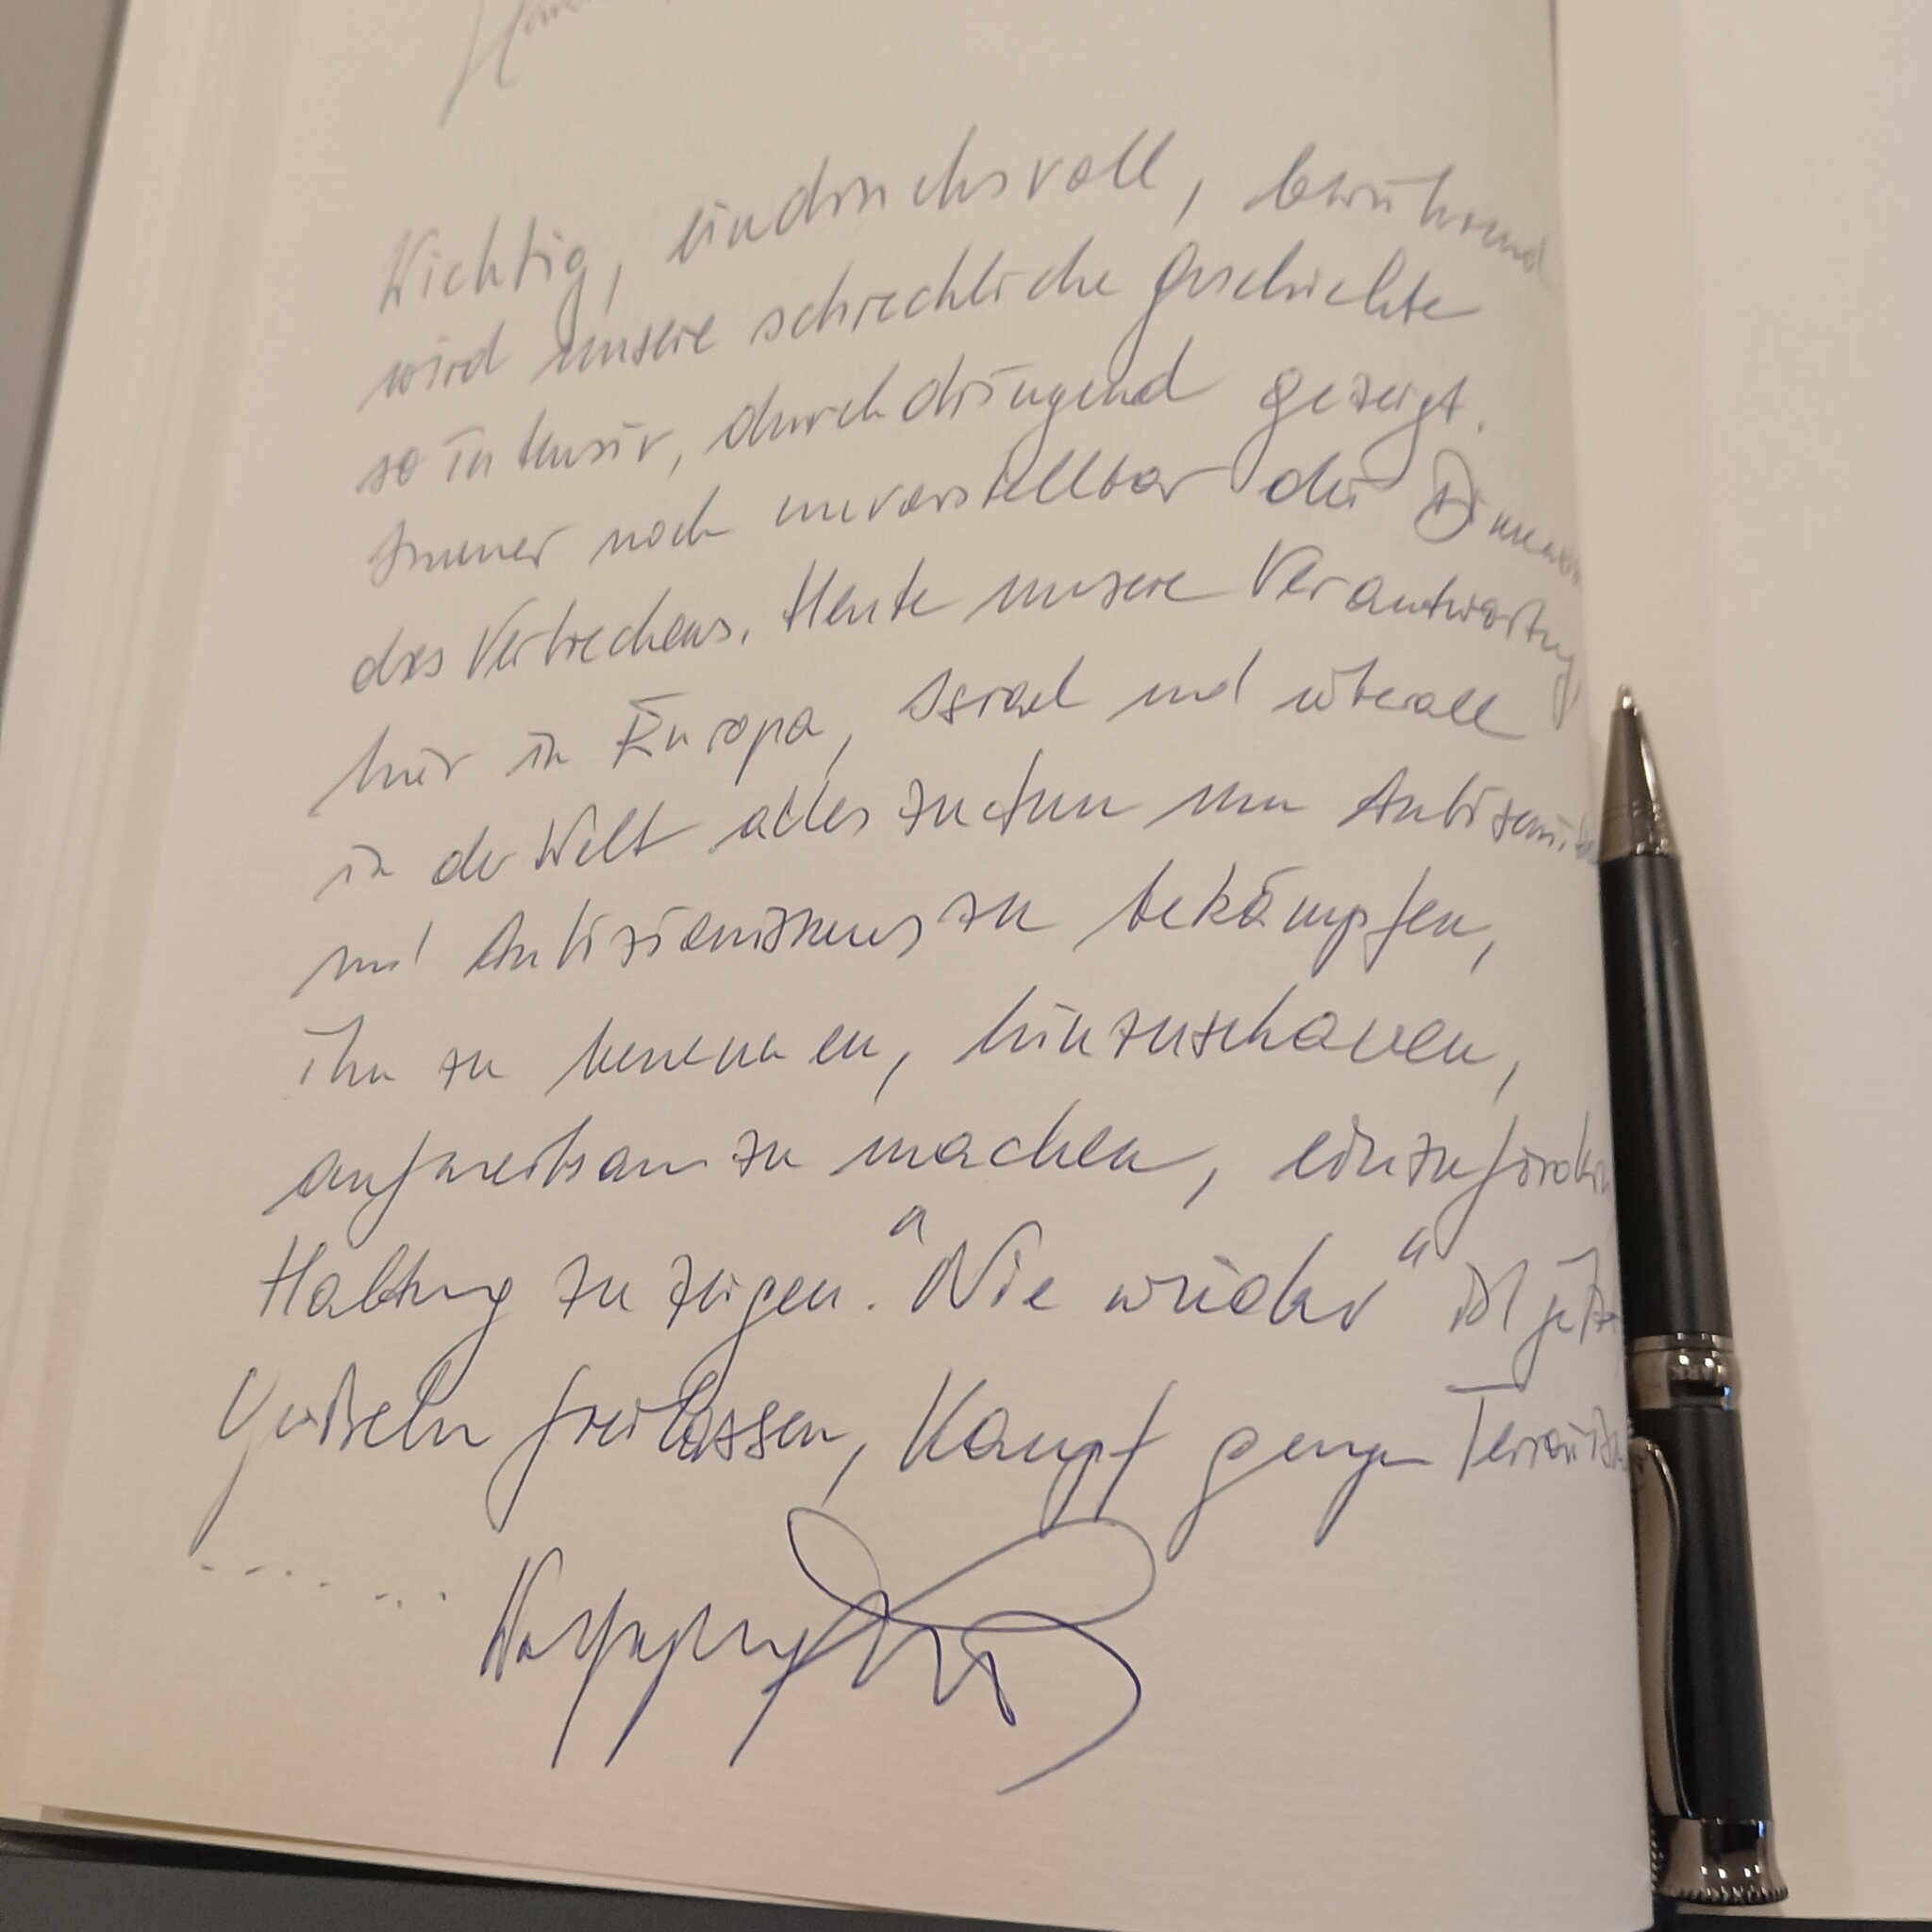 Wichtig, eindrucksvoll, berührend
wird unsere schreckliche Geschichte
so intensiv, durchdringend gezeigt.
Immer noch unvorstellbar die
des Verbrechens. Heute unsere Verantwortung,
hier in Europa, Israel und überall
in der Welt alles zu tun um
und Antizionismus zu bekämpfen,
ihn zu benennen, hinzuschauen,
aufmerksam zu machen, einzufordern
Haltung zu zeigen. "Nie wieder" ist jetzt
Geiseln freilassen, Kampf gegen